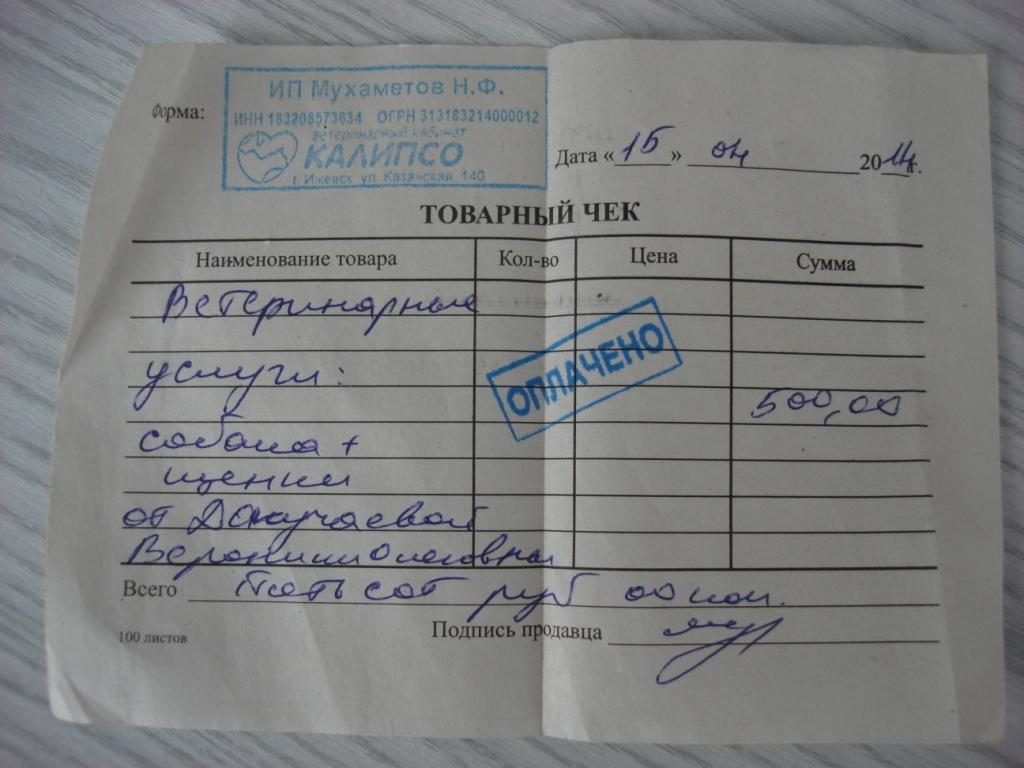 ИП Мухаметов Н.Ф.
Форма:
ИНН 183208573634 ОГРН 313183214000012
ветеринарный кабинет
КАЛИПСО
г. Ижевск ул. Казанская, 140
Дата «15» 04 2014г.
ТОВАРНЫЙ ЧЕК
Наименование товара Кол-во Цена Сумма
Ветеринарные
услуги:
ОПЛАЧЕНО
500,00
собака +
щенки
от Докучаевой
Вероники Олеговны
Всего Пятьсот руб 00 коп.
100 листов
Подпись продавца